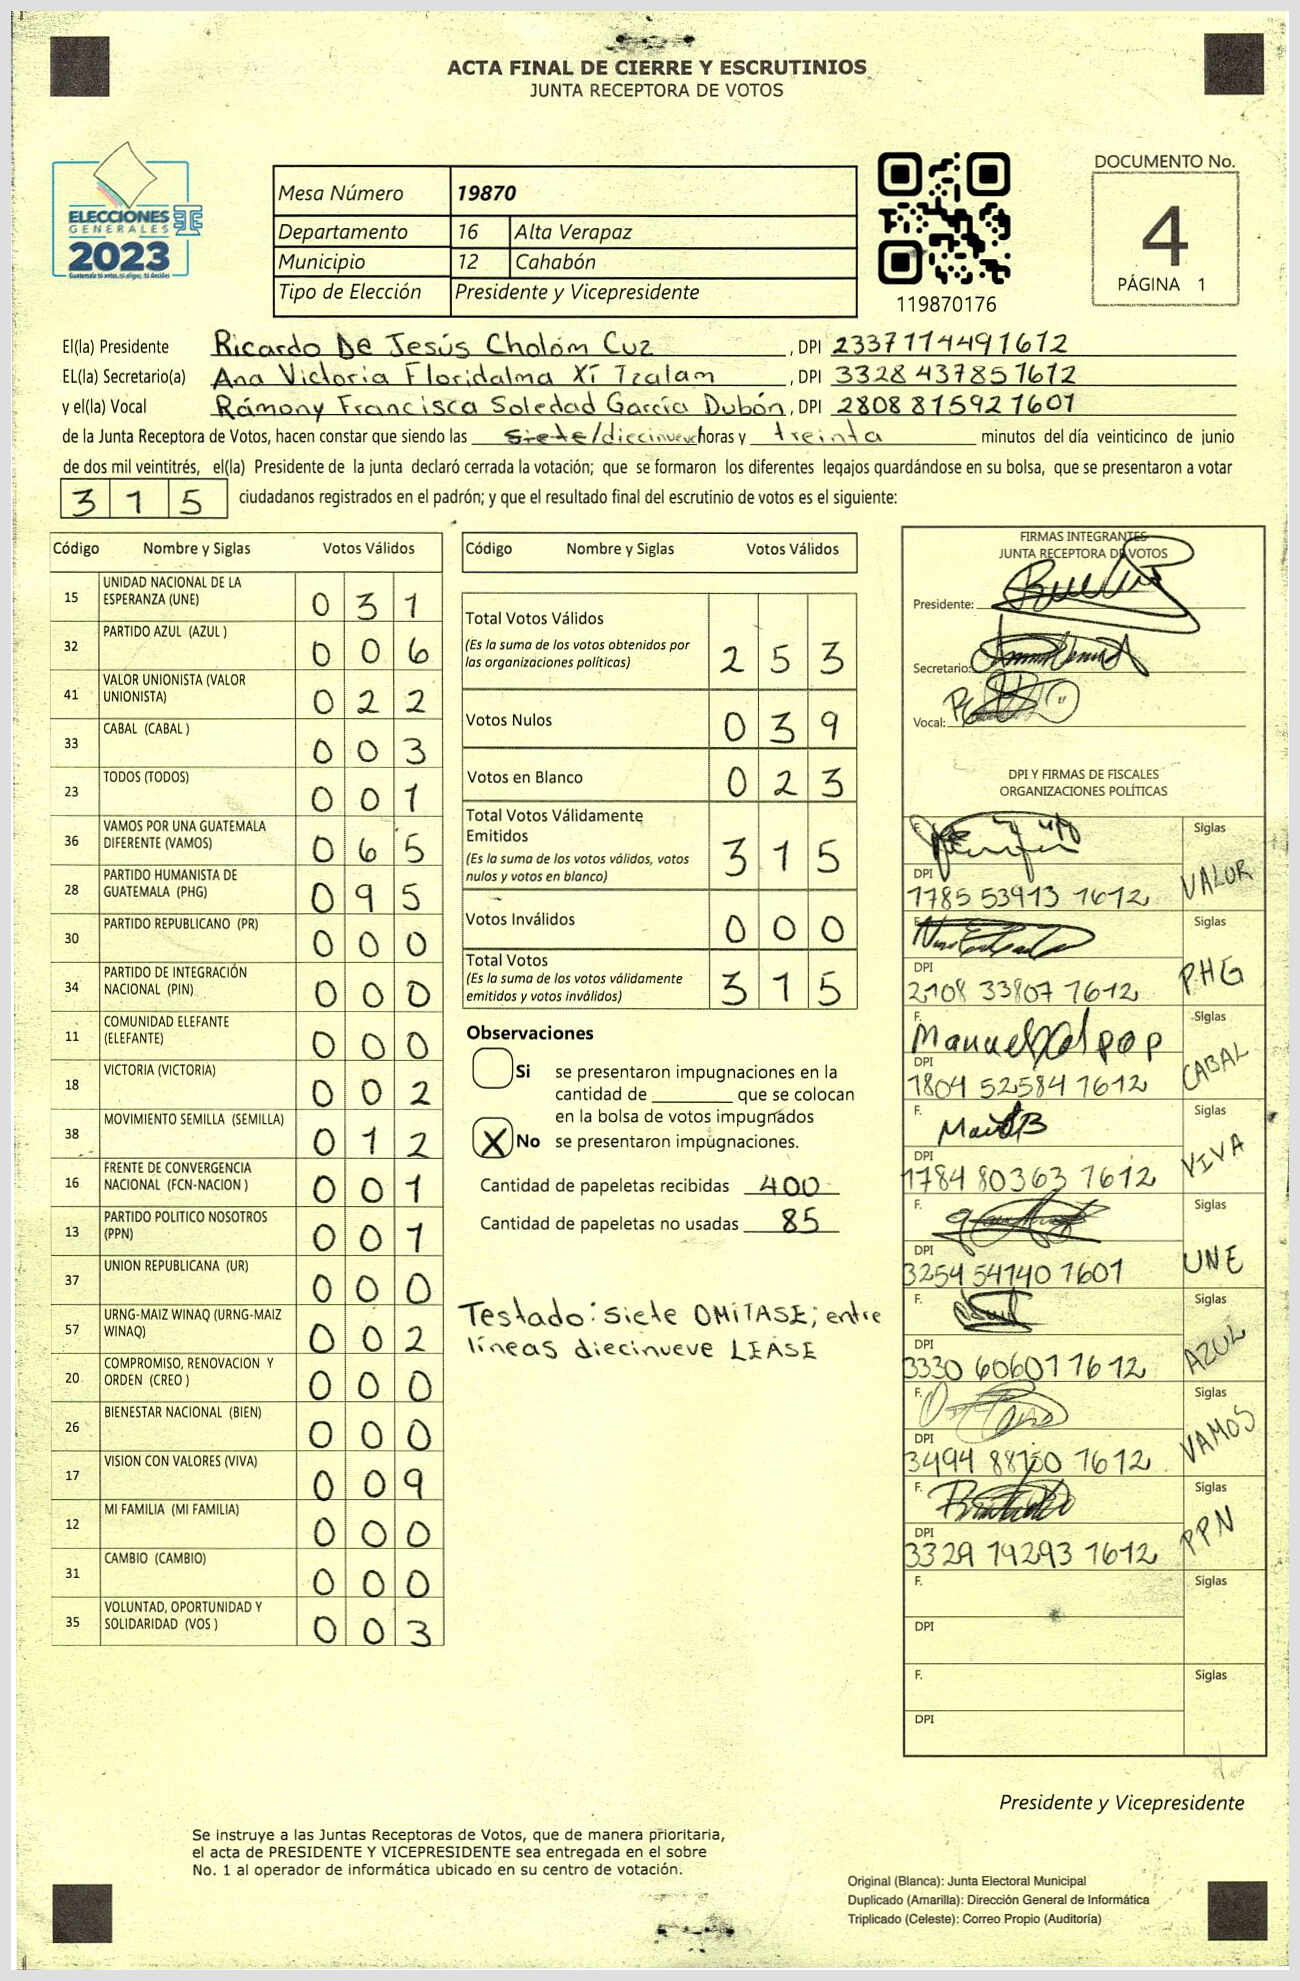 ACTA FINAL DE CIERRE Y ESCRUTINIOS
JUNTA RECEPTORA DE VOTOS
ELECCIONES
GENERALES
2023
Mesa Número 19870
Departamento 16 Alta Verapaz
Municipio 12 Cahabón
Tipo de Elección Presidente y Vicepresidente
119870176
DOCUMENTO No.
4
PÁGINA 1
El(la) Presidente Ricardo De Jesús Cholóm Cuz, DPI 2337114491612
EL(la) Secretario(a) Ana Victoria Floridalma Xí Tzalam, DPI 3328437851612
y el(la) Vocal Rámony Francisca Soledad García Dubón, DPI 2808815921601
de la Junta Receptora de Votos, hacen constar que siendo las siete/diecinueve horas y treinta minutos del día veinticinco de junio
de dos mil veintitrés, el(la) Presidente de la junta declaró cerrada la votación; que se formaron los diferentes legajos quardándose en su bolsa, que se presentaron a votar
315 ciudadanos registrados en el padrón; y que el resultado final del escrutinio de votos es el siguiente:
Código Nombre y Siglas Votos Válidos
15 UNIDAD NACIONAL DE LA ESPERANZA (UNE) 031
32 PARTIDO AZUL (AZUL ) 006
41 VALOR UNIONISTA (VALOR UNIONISTA) 022
33 CABAL (CABAL ) 003
23 TODOS (TODOS) 001
36 VAMOS POR UNA GUATEMALA DIFERENTE (VAMOS) 065
28 PARTIDO HUMANISTA DE GUATEMALA (PHG) 095
30 PARTIDO REPUBLICANO (PR) 000
34 PARTIDO DE INTEGRACIÓN NACIONAL (PIN) 000
11 COMUNIDAD ELEFANTE (ELEFANTE) 000
18 VICTORIA (VICTORIA) 002
38 MOVIMIENTO SEMILLA (SEMILLA) 012
16 FRENTE DE CONVERGENCIA NACIONAL (FCN-NACION ) 001
13 PARTIDO POLITICO NOSOTROS (PPN) 001
37 UNION REPUBLICANA (UR) 000
57 URNG-MAIZ WINAQ (URNG-MAIZ WINAQ) 002
20 COMPROMISO, RENOVACION Y ORDEN (CREO ) 000
26 BIENESTAR NACIONAL (BIEN) 000
17 VISION CON VALORES (VIVA) 009
12 MI FAMILIA (MI FAMILIA) 000
31 CAMBIO (CAMBIO) 000
35 VOLUNTAD, OPORTUNIDAD Y SOLIDARIDAD (VOS ) 003
Código Nombre y Siglas Votos Válidos
Total Votos Válidos
(Es la suma de los votos obtenidos por
las organizaciones políticas) 253
Votos Nulos 039
Votos en Blanco 023
Total Votos Válidamente
Emitidos
(Es la suma de los votos válidos, votos
nulos y votos en blanco) 315
Votos Inválidos 000
Total Votos
(Es la suma de los votos válidamente
emitidos y votos inválidos) 315
Observaciones
Si se presentaron impugnaciones en la
cantidad de ________ que se colocan
en la bolsa de votos impugnados
X No se presentaron impugnaciones.
Cantidad de papeletas recibidas 400
Cantidad de papeletas no usadas 85
Testado: siete OMITASE; entre
líneas diecinueve LEASE
FIRMAS INTEGRANTES
JUNTA RECEPTORA DE VOTOS
Presidente:
Secretario:
Vocal:
DPI Y FIRMAS DE FISCALES
ORGANIZACIONES POLÍTICAS
F. Siglas
DPI VALOR
1785 53913 1612
F. Siglas
DPI PHG
2108 33807 1612
F. Siglas
DPI CABAL
1804 52584 1612
F. Siglas
DPI VIVA
1784 80363 1612
F. Siglas
DPI UNE
3254 54140 1601
F. Siglas
DPI AZUL
3330 60601 1612
F. Siglas
DPI VAMOS
3494 88150 1612
F. Siglas
DPI PPN
3329 19293 1612
F. Siglas
DPI
F. Siglas
DPI
Presidente y Vicepresidente
Se instruye a las Juntas Receptoras de Votos, que de manera prioritaria,
el acta de PRESIDENTE Y VICEPRESIDENTE sea entregada en el sobre
No. 1 al operador de informática ubicado en su centro de votación.
Original (Blanca): Junta Electoral Municipal
Duplicado (Amarilla): Dirección General de Informática
Triplicado (Celeste): Correo Propio (Auditoría)